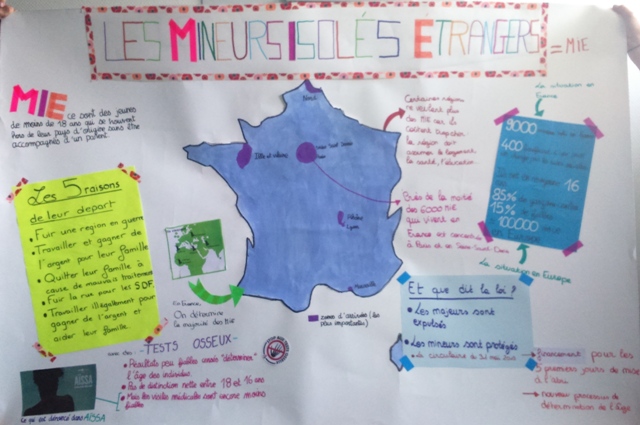 LES MINEURS ISOLÉS ETRANGERS = MIE
MIE ce sont des jeunes
de moins de 18 ans qui se trouvent
hors de leur pays d'origine sans être
accompagnés d'un parent.
Les 5 raisons
de leur depart
• Fuir une region en guerre
• Travailler et gagner de
l'argent pour leur famille
• Quitter leur famille à
cause de mauvais traitements
• Fuir la rue pour les SDF
• Travailler illégalement pour
gagner de l'argent et
aider leur famille.
Nord
Ille et vilaine
Seine Saint Denis
Paris
Rhône
Lyon
Marseille
zones d'arrivées (les
plus importantes)
Certaines régions
ne veulent plus
des MIE car ils
coûtent trop cher.
la région doit
assumer le logement,
la santé, l'éducation...
Près de la moitié
des 6000 MIE
qui vivent en
France est concentrée
à Paris et en Seine-Saint-Denis
La situation en
France
9000
400
16
85%
15%
100000
La situation en Europe
En France,
On détermine
la majorité des MIE
avec des : - TESTS OSSEUX -
• Résultats peu fiables censés "déterminer"
l'âge des individus.
• Pas de distinction nette entre 18 et 16 ans
• Mais les visites médicales sont encore moins
fiables
AÏSSA
Ce qui est dénoncé dans AÏSSA
Et que dit la loi ?
• Les majeurs sont
expulsés
• Les mineurs sont protégés
→ la circulaire du 31 mai 2013
→ financement pour les
5 premiers jours de mise
à l'abri
→ nouveau processus de
détermination de l'âge